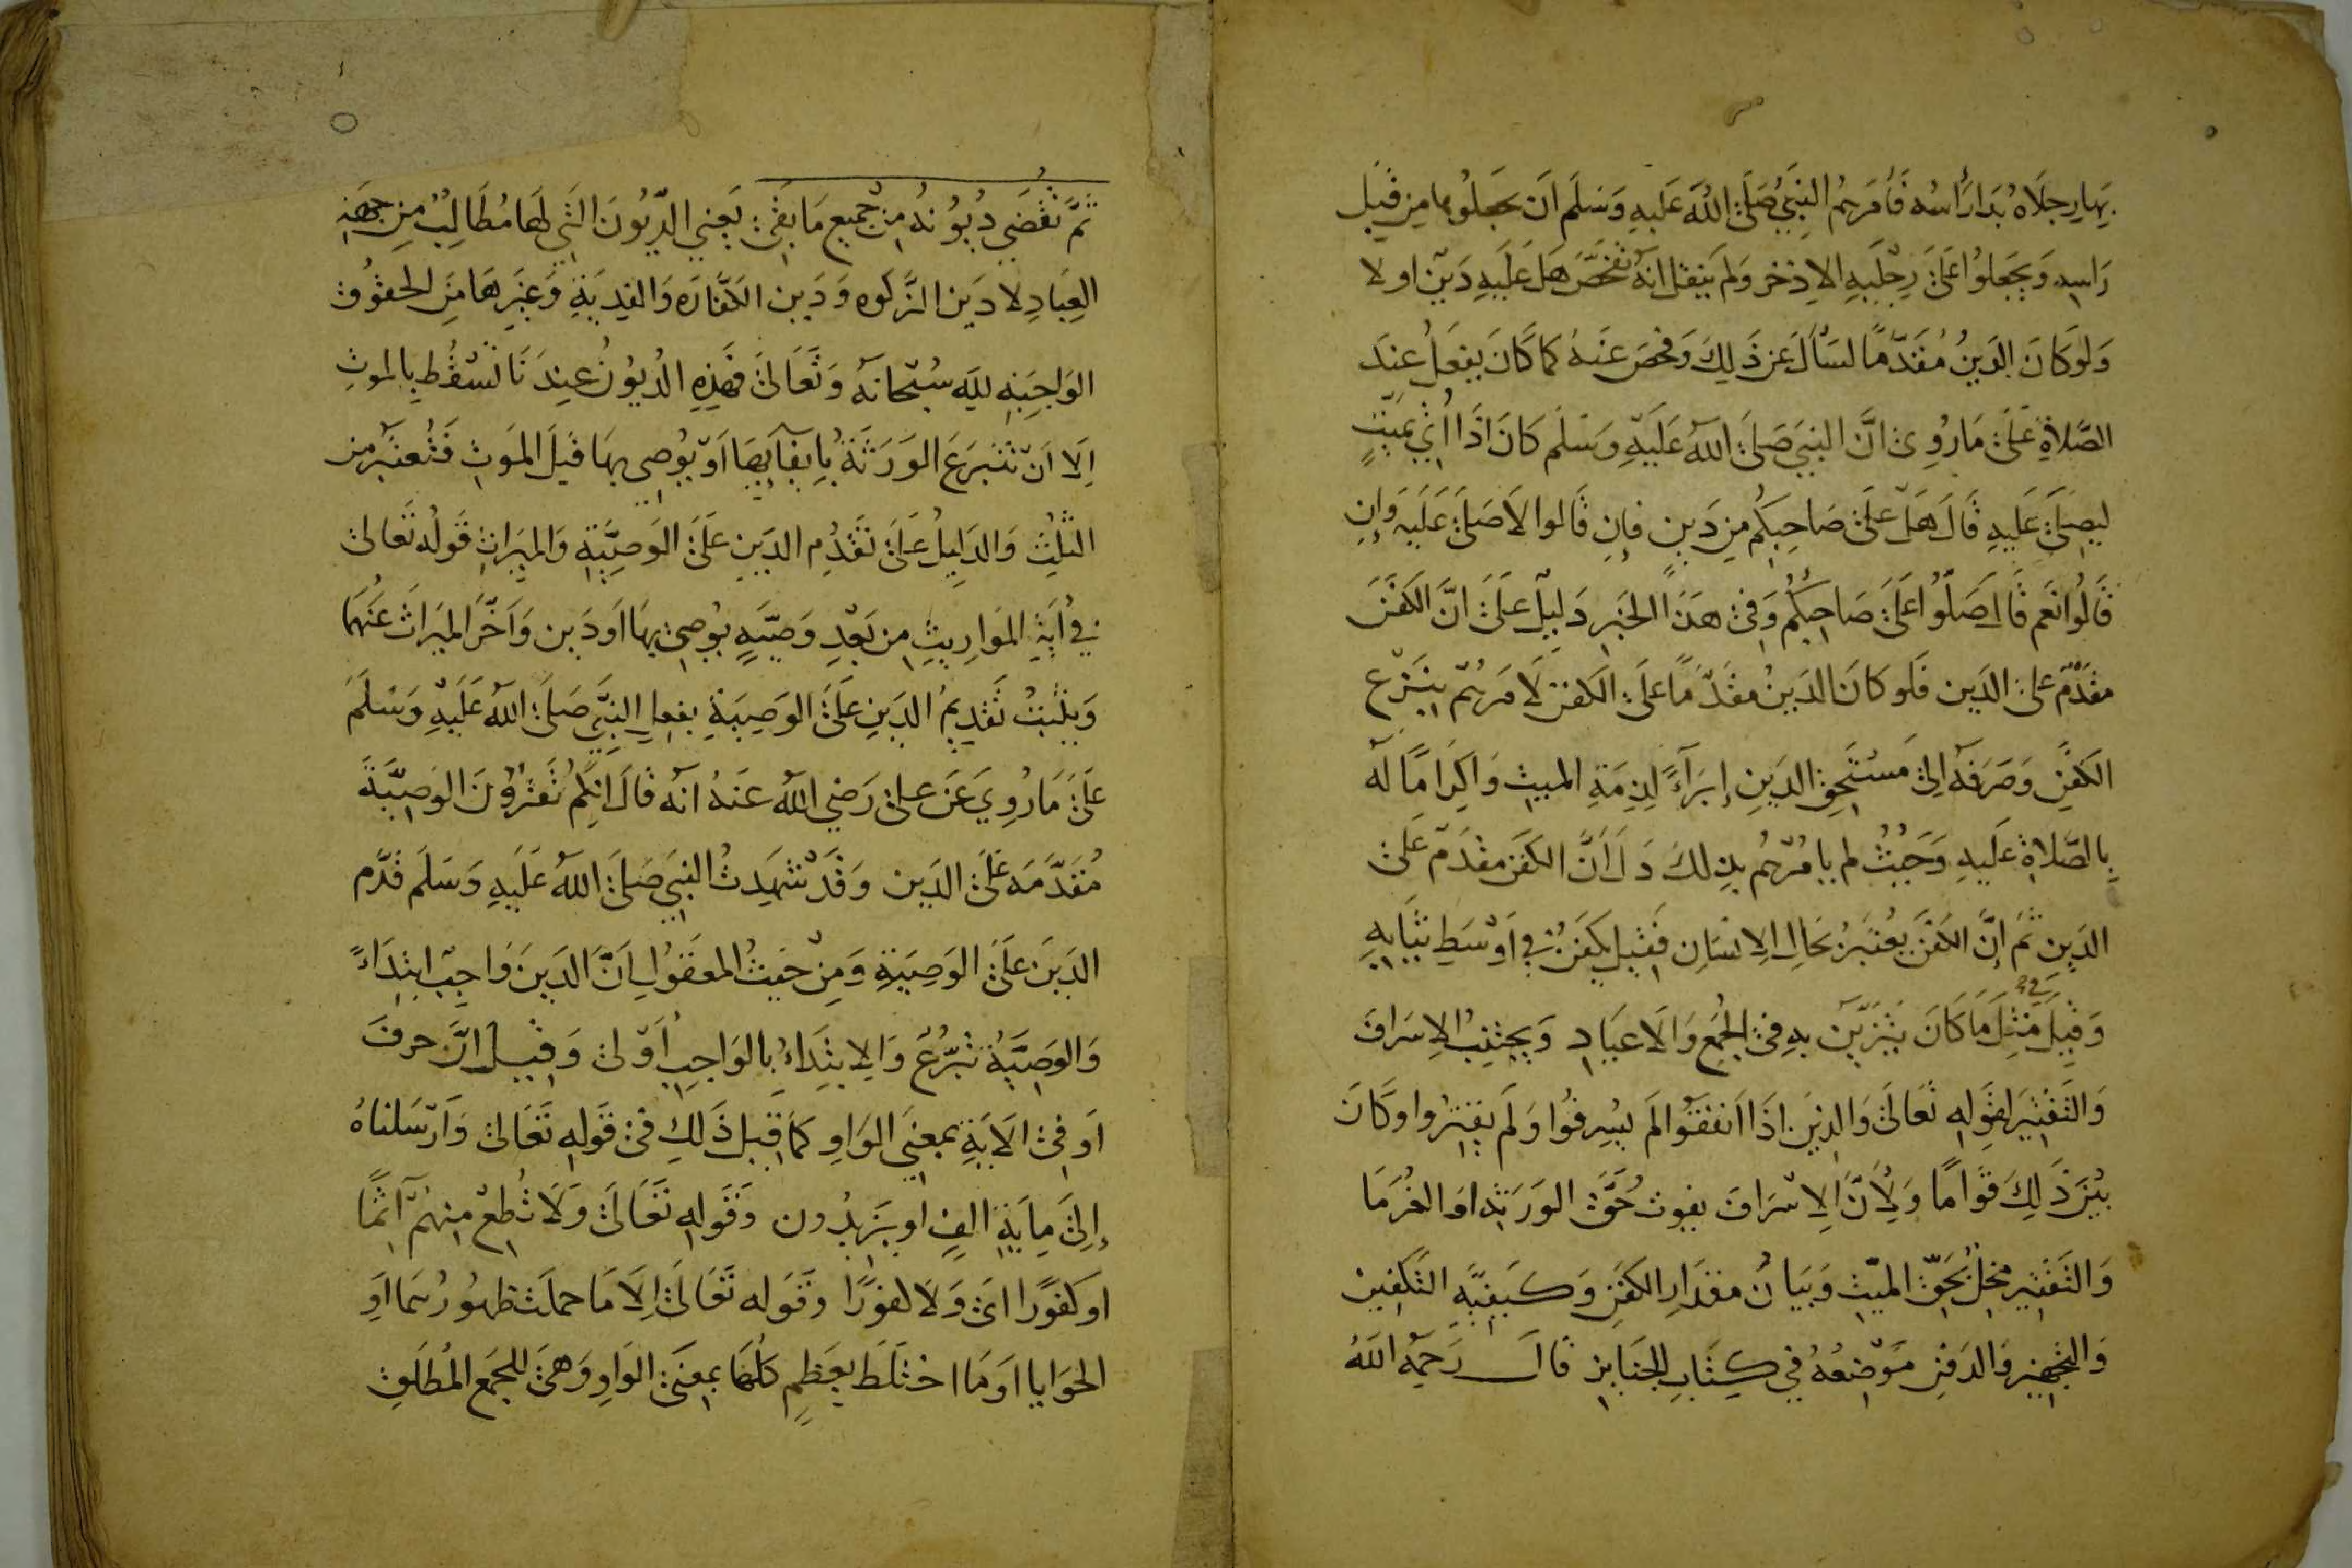 بِهَا رِجلَاهُ بَدَا رَأسُه فَأمَرَهُم النَبِيُّ صَلَى اللهُ عَلَيهِ وَسَلَم اَن يجعَلُوها مِن قِبَلِ
رَاسِهِ وَيجعَلوُا عَلَى رِجْلَيهِ الاِذخر وَلَم يَنقل انهُ تفحَّصَ هَل عَلَيهِ دَيْن او لا
وَلَو كَانَ الدَينُ مُقَدَّمًا لسَألَ عَن ذَلِكَ وَفحَصَ عَنهُ كَما كَانَ يفعَلُ عِندَ
الصَّلاةِ عَلَى مَا رُوِى انَّ النبيَ صَلى اللهُ عَلَيْهِ وَسَلَم كَانَ اذَا اُتِيَ بميّتٍ
ليصَلىَ عَلَيهِ قَالَ هَلْ عَلَى صَاحِبِكُم مِن دَينٍ فإن قَالوا لاَ صَلىَ عَلَيهِ وَإن
قَالُوا نَعَم قَالَ صَلّوُا عَلَى صَاحِبِكُم وَفِى هَذَا الخبَرِ دَلِيل عَلَى انَّ الكَفَنَ
مقَدَّمٌ على الدَين فَلَو كَانَ الدَينُ مقَدَّمًا عَلَى الكَفن لاَمَرهُم بِنَزع
الكَفَنِ وَصَرَفَه اِلى مُستَحِقِ الدَينِ إبرَاءً لِذِمَةِ الميتِ وَاكِرَامًا لَه
بِالصَّلاةِ عَلَيهِ وَحَيثُ لم يامُرهُم بذلكَ دَلَ اَنَّ الكَفَن مقدَم عَلى
الدَينِ ثُمَ إنَّ الكَفَنَ يعُتَبَرُ بحَالِ الاِنسَانِ فَقيلَ يُكَفَنُ في اَوْسَطِ ثيَابِهِ
وَقِيلَ مِثلَ مَا كَانَ يَتَزَيّن بهِ فى الجُمَعِ وَالاَعيَادِ وَيجتَنِبُ الاِسرَافَ
وَالتَقتِيرَ لقَولِهِ تعَالىَ وَالذِينَ اذَا اَنفَقوُا لَم يسُرِفُوا وَلَم يَقتروا وكَانَ
بَيْنَ ذَلِكَ قَوَامًا وَلِأَنَّ الاِسْرَافَ يفوت حَقَّ الوَرَثَةِ اوَ الغُرَمَا
وَالتَقتِير مخِلٌ بحَقِّ الميّتِ وَبَيَانُ مقدَارِ الكَفَنِ وَكَيفِيَّةِ التَكفِين
وَالتجهِيزِ وَالدَفنِ مَوْضِعُهُ في كِتَابِ الجَنَايزِ قالَ رَحِمَهُ اللهُ
ثمَّ تُقْضَي دُيُوُنُهُ مِن جميعِ مَا بَقَى يَعني الدّيُونَ التي لهَا مُطَالِبٌ مِن جِهَةِ
العِبَادِ لا دَين الزَّكوه وَدَين الكفَّارَه وَالفِديَةِ وَغَيرِهَا مِنَ الحقوُق
الوَاجِبَه لِلّه سُبْحَانَه وَتَعَالَى فهَذِهِ الدُيوُنُ عِندَنَا تَسْقُط بِالموتِ
اِلاَ اَنْ تتَبرَعَ الوَرَثَةُ بِإيفَآيهَا اَوْ يوُصِي بهَا قَبلَ الموَتِ فَتُعتَبَر من
الثلُثِ وَالدَلِيلُ عَلَى تَقَدُمِ الدَينِ عَلَى الوَصِيَّةِ وَالمِيَراثِ قَولُه تَعَالى
في اٰيَةِ الموَارِيثِ مِن بَعْدِ وَصيَّةٍ يوُصِى بهَا اَو دَين وَاَخَّرَ الميَراثَ عَنهُمَا
وَيثبُتُ تَقدِيمُ الدَينِ عَلَى الوَصِيَةِ بفعلِ النَبيِّ صَلى اللهُ عَلَيْهِ وَسَلَمَ
عَلىَ مَا رُوِيَ عَن على رَضِي اللهُ عَنهُ انهُ قَالَ انكُم تُقرُؤنَ الوَصِيَّةَ
مُقَدَّمَه عَلَى الدَين وَقَدْ شَهِدتُ النبيَ صَلى اللهُ عَلَيهِ وَسَلَم قدَّم
الدَينَ عَلَى الوَصِيَةِ وَمِنْ حَيثُ المعقوُلِ اَنَّ الدَينَ وَاجِبٌ ابتِدَاءً
وَالوَصِيَّةُ تبرُّعٌ وَالاِبتِدَاءُ بِالوَاجِبِ اَوْلى وَقِيلَ انَّ حرفَ
اَو فِى الاَيَةِ بمعنَى الوَاوِ كمَا قِيلَ ذَلِكَ فى قَولِهِ تَعَالى وَاَرْسَلنَاهُ
إِلىَ مِايَةِ الفٍ او يَزيدُون وَقَولِهِ تَعَالَى وَلاَ تُطِعْ مِنهُمْ آثمًا
اوَ كَفوُرًا اىَ وَلاَ كفورًا وقَوَله تَعَالَى اِلاَ مَا حملَت ظهوُرُهمَا اَوِ
الحَوَايا اَو مَا اختَلَطَ بعَظمٍ كلهَا بمعنَى الوَاوِ وَهىَ للجَمع المُطلَقِ